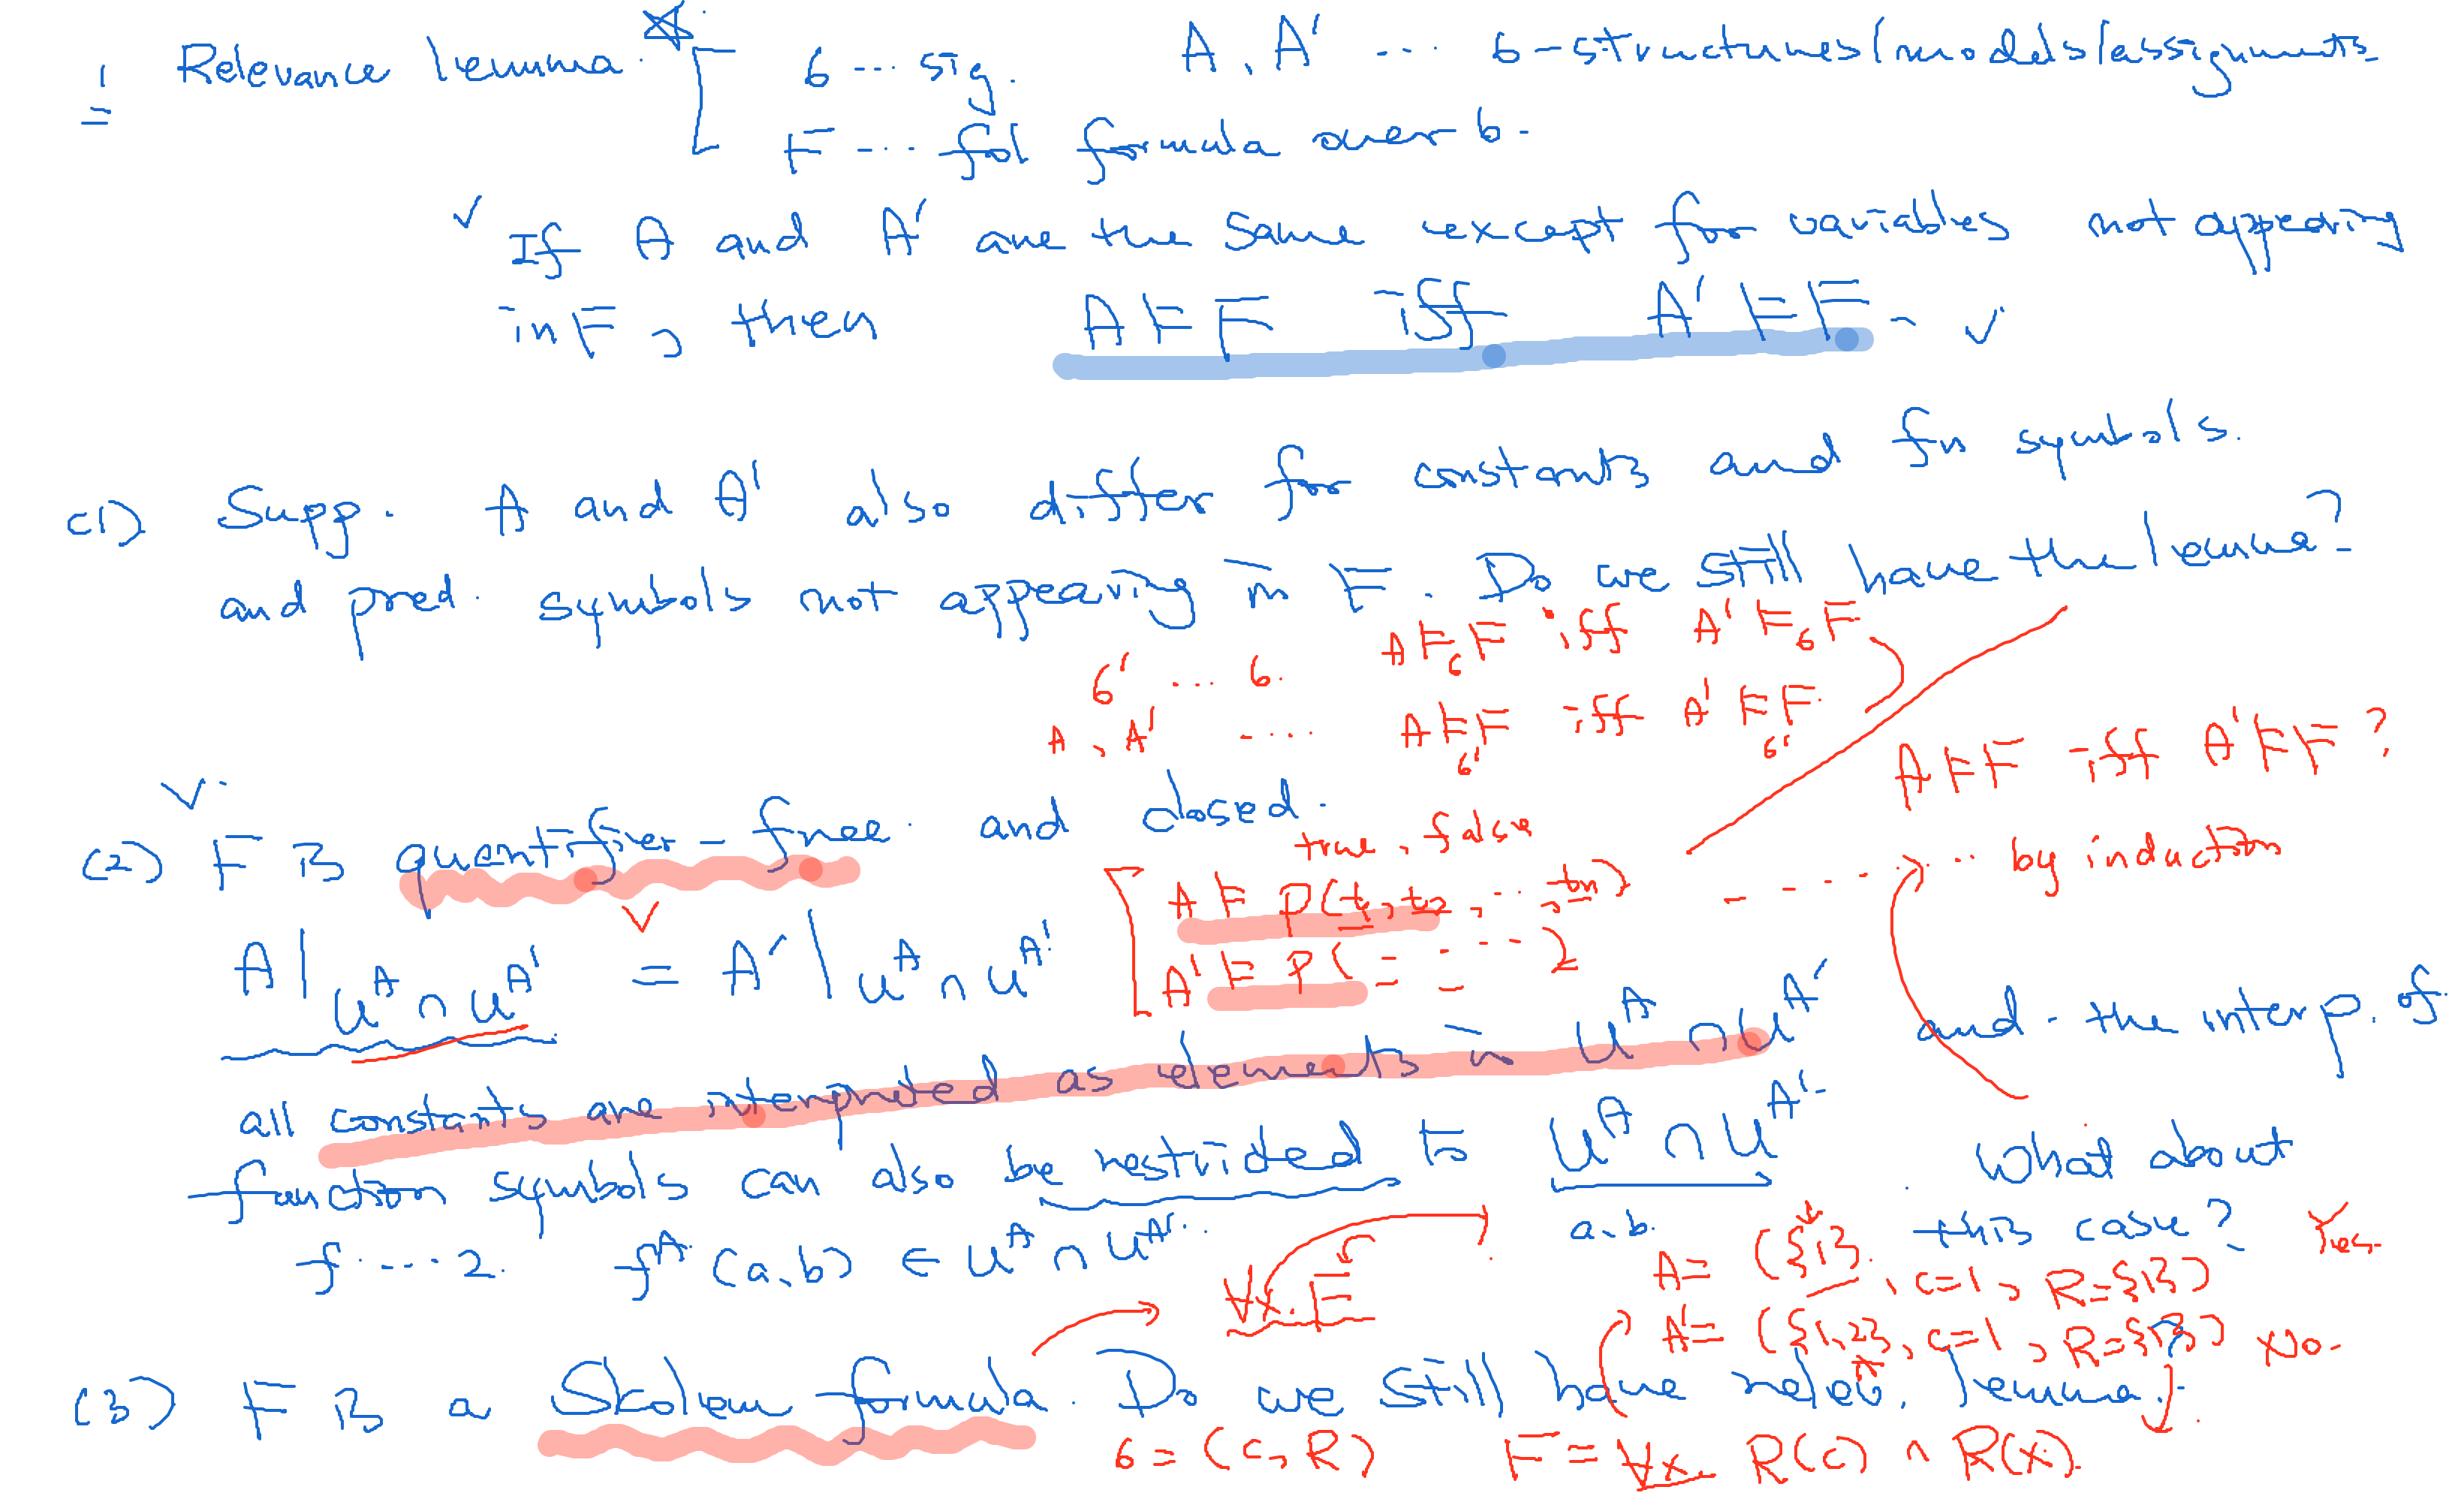 1 Relevance lemma. σ ... sig. A, A' ... σ-structures/models/assignments
F ... fol formula over σ.
✓ If A and A' are the same except for variables not appearing
in F, then A ⊨ F iff A' ⊨ F. ✓
(1) Supp. A and A' also differ for constants and fn symbols.
and pred. symbols not appearing in F. Do we still have the lemma?
A ⊨σ F iff A' ⊨σ F
σ' ... σ.
A, A' ... A ⊨σ' F iff A' ⊨σ' F.
A ⊨ F iff A' ⊨ F ?
(2) F is quantifier-free. and closed.
true, false
A ⊨ P(t₁, t₂, ... , tn) - - - - ... by induction
A' ⊨ P( = = - - )
A|U^A ∩ U^A' = A'|U^A ∩ U^A' and the interp. of
all constants are interpreted as elements in U^A ∩ U^A'
function symbols can also be restricted to U^A ∩ U^A'. What about
this case? Yes.
f ... 2. f^A(a,b) ∈ U^A ∩ U^A'. a, b.
A = ({1}, c=1, R={1})
∀x. F
A' = ({1,2}, c=1, R={1}) No.
(3) F is a Skolem formula. Do we still have relev. lemma?
σ = (c, R) F = ∀x. R(c) ∧ R(x).